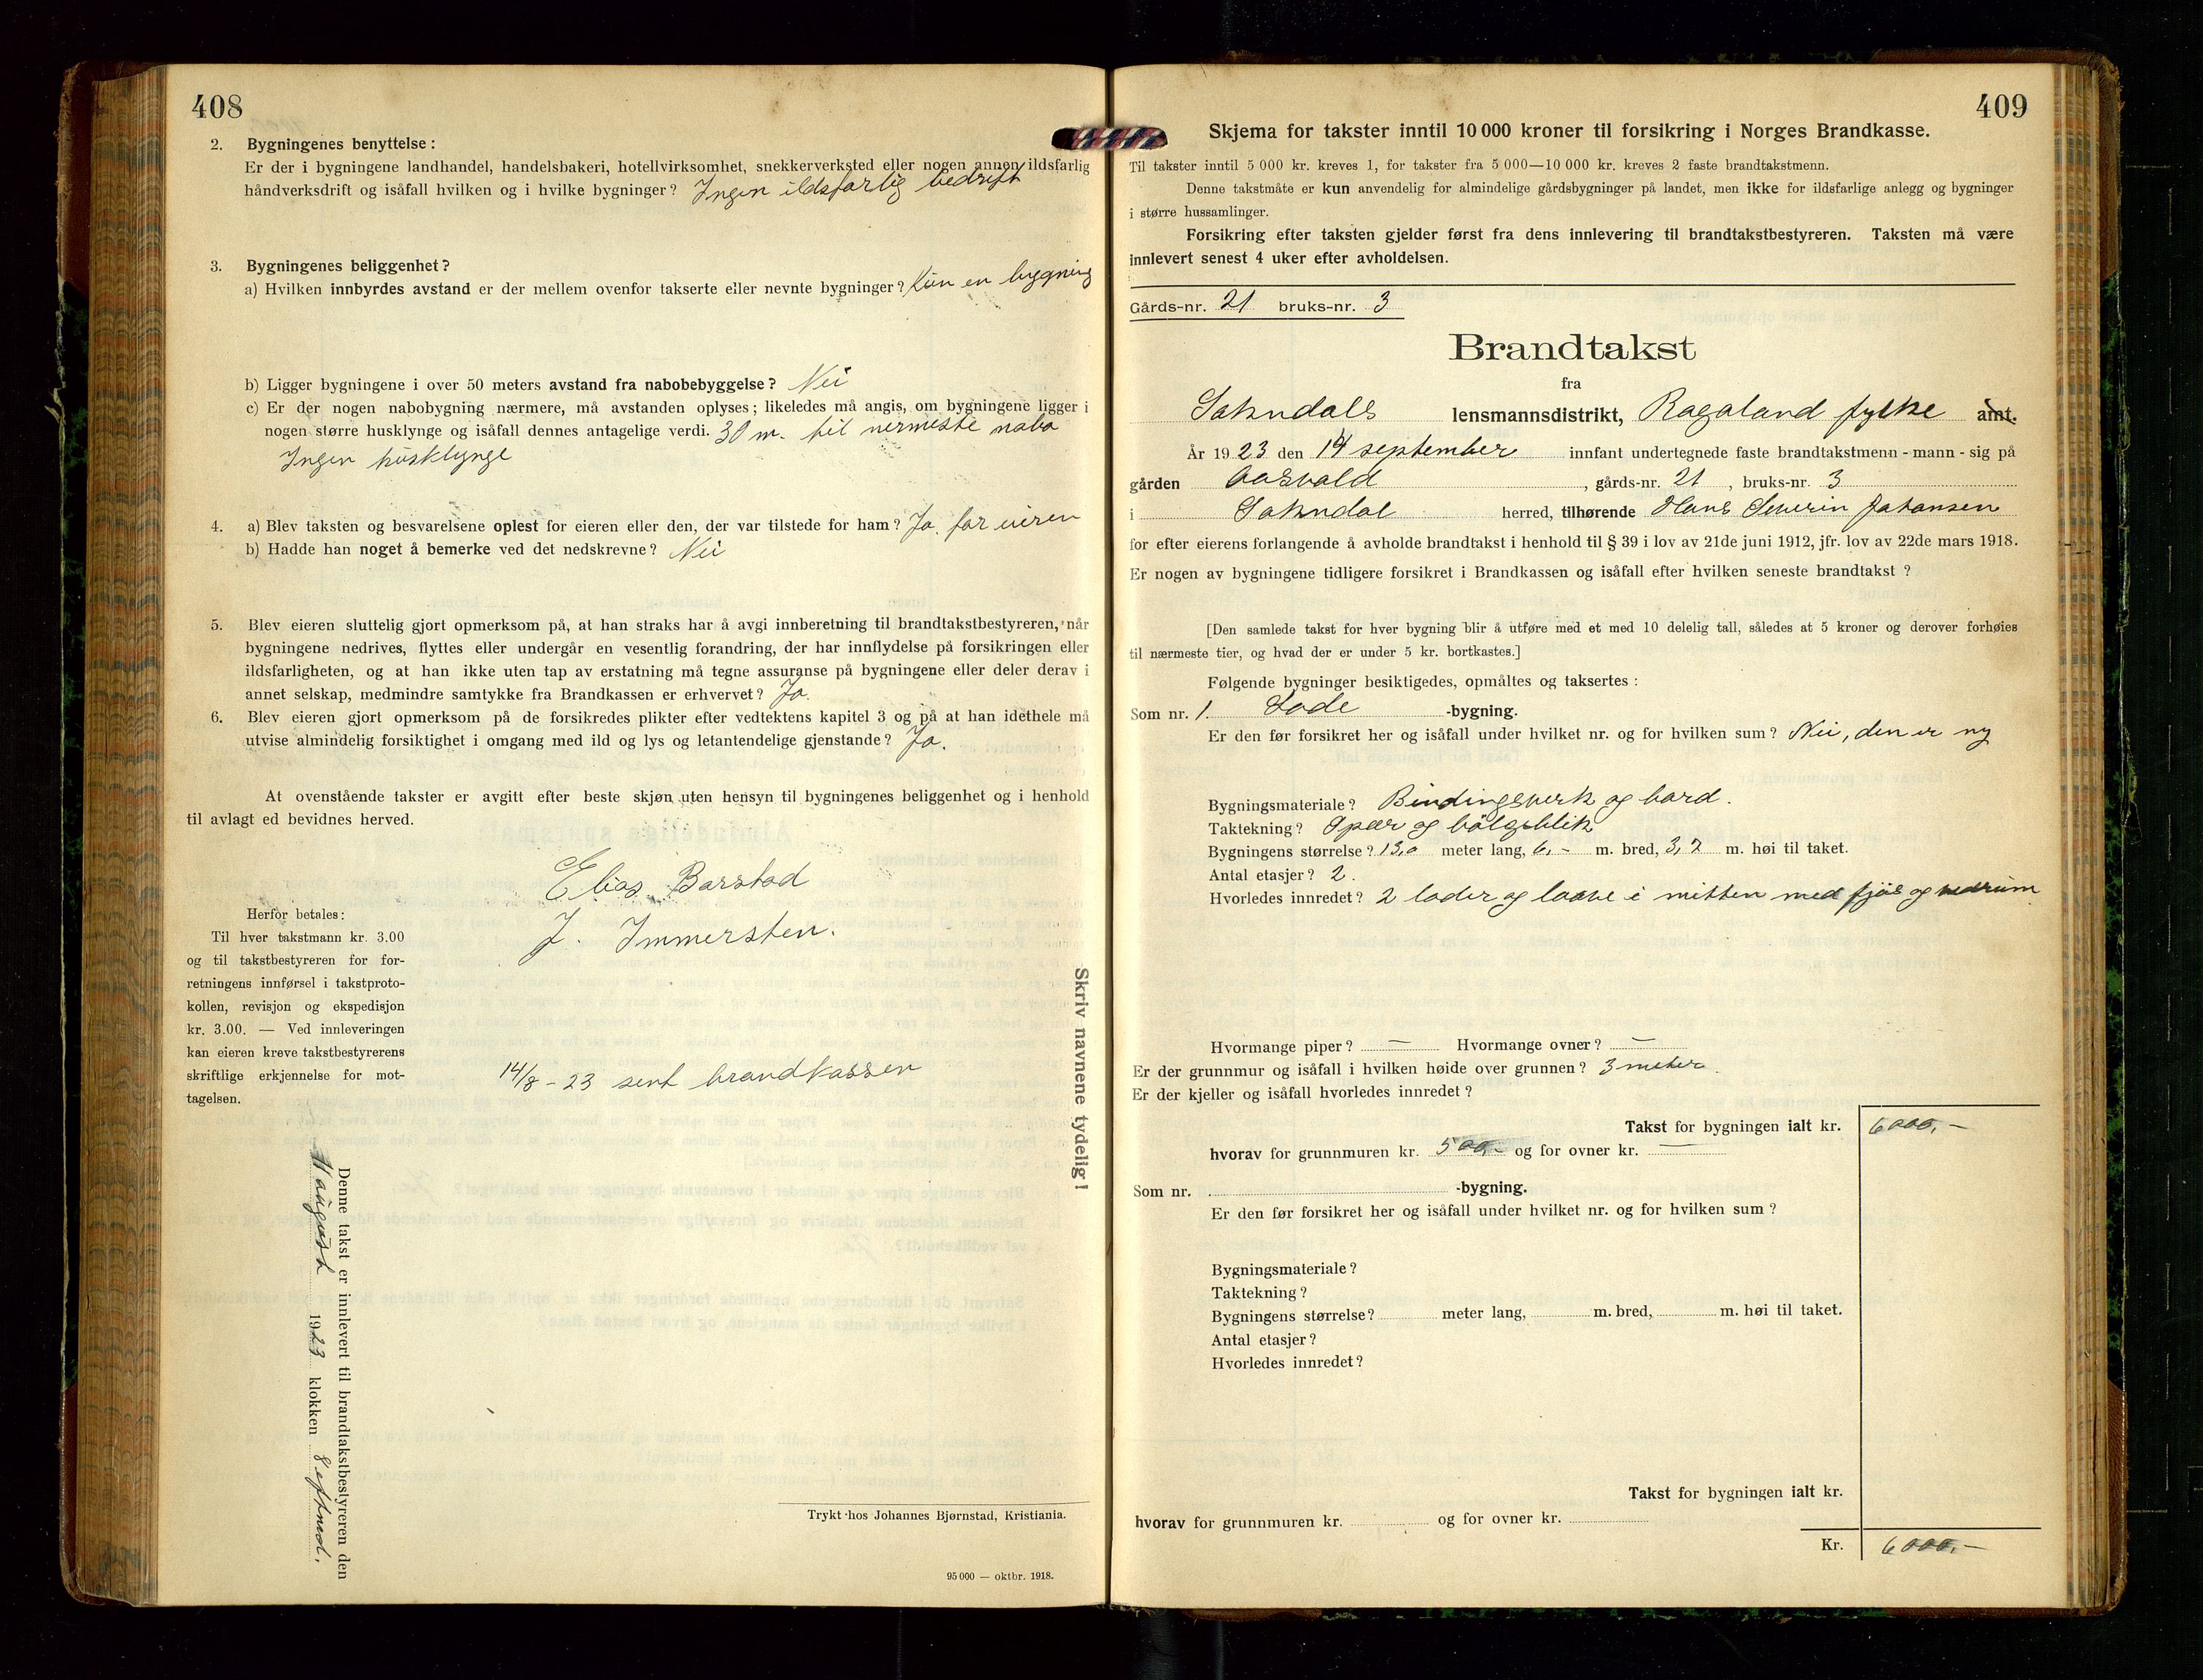 408
2. Bygningenes benyttelse:
Er der i bygningene landhandel, handelsbakeri, hotellvirksomhet, snekkerverksted eller nogen annen ildsfarlig
håndverksdrift og isåfall hvilken og i hvilke bygninger? Ingen ildsfarlig bedrift
3. Bygningenes beliggenhet?
a) Hvilken innbyrdes avstand er der mellem ovenfor takserte eller nevnte bygninger? Kun en bygning
b) Ligger bygningene i over 50 meters avstand fra nabobebyggelse? Nei
c) Er der nogen nabobygning nærmere, må avstanden oplyses; likeledes må angis, om bygningene ligger i
nogen større husklynge og isåfall dennes antagelige verdi. 30 m. til nermeste nabo
Ingen husklynge
4. a) Blev taksten og besvarelsene oplest for eieren eller den, der var tilstede for ham? Ja, for eieren
b) Hadde han noget å bemerke ved det nedskrevne? Nei
5. Blev eieren sluttelig gjort opmerksom på, at han straks har å avgi innberetning til brandtakstbestyreren, når
bygningene nedrives, flyttes eller undergår en vesentlig forandring, der har innflydelse på forsikringen eller
ildsfarligheten, og at han ikke uten tap av erstatning må tegne assuranse på bygningene eller deler derav i
annet selskap, medmindre samtykke fra Brandkassen er erhvervet? Ja.
6. Blev eieren gjort opmerksom på de forsikredes plikter efter vedtektens kapitel 3 og på at han idethele må
utvise almindelig forsiktighet i omgang med ild og lys og letantendelige gjenstande? Ja.
At ovenstående takster er avgitt efter beste skjøn uten hensyn til bygningenes beliggenhet og i henhold
til avlagt ed bevidnes herved.
Elias Barstad
J. Immersten.
Herfor betales:
Til hver takstmann kr. 3.00
og til takstbestyreren for for-
retningens innførsel i takstproto-
kollen, revisjon og ekspedisjon
kr. 3.00. — Ved innleveringen
kan eieren kreve takstbestyrerens
skriftlige erkjennelse for mot-
tagelsen.
14/8 - 23 sent brandkassen
Skriv navnene tydelig!
Denne takst er innlevert til brandtakstbestyreren den
11 august 1923 klokken 8 eftmd.
Trykt hos Johannes Bjørnstad, Kristiania.
95 000 — oktbr. 1918.
409
Skjema for takster inntil 10 000 kroner til forsikring i Norges Brandkasse.
Til takster inntil 5 000 kr. kreves 1, for takster fra 5 000—10 000 kr. kreves 2 faste brandtakstmenn.
Denne takstmåte er kun anvendelig for almindelige gårdsbygninger på landet, men ikke for ildsfarlige anlegg og bygninger
i større hussamlinger.
Forsikring efter taksten gjelder først fra dens innlevering til brandtakstbestyreren. Taksten må være
innlevert senest 4 uker efter avholdelsen.
Gårds-nr. 21 bruks-nr. 3
Brandtakst
fra
Sokndals lensmannsdistrikt, Rogaland fylke amt.
År 1923 den 14 september innfant undertegnede faste brandtakstmenn - mann - sig på
gården Aasvald, gårds-nr. 21, bruks-nr. 3
i Sokndal herred, tilhørende Hans Severin Johansen
for efter eierens forlangende å avholde brandtakst i henhold til § 39 i lov av 21de juni 1912, jfr. lov av 22de mars 1918.
Er nogen av bygningene tidligere forsikret i Brandkassen og isåfall efter hvilken seneste brandtakst?
[Den samlede takst for hver bygning blir å utføre med et med 10 delelig tall, således at 5 kroner og derover forhøies
til nærmeste tier, og hvad der er under 5 kr. bortkastes.]
Følgende bygninger besiktigedes, opmåltes og taksertes:
Som nr. 1. Lode -bygning.
Er den før forsikret her og isåfall under hvilket nr. og for hvilken sum? Nei, den er ny
Bygningsmateriale? Bindingsverk og bord.
Taktekning? Spær og bølgeblik
Bygningens størrelse? 13,0 meter lang, 6,- m. bred, 3,7 m. høi til taket.
Antal etasjer? 2.
Hvorledes innredet? 2 loder og laave i mitten med fjøs og vedrum
Hvormange piper? — Hvormange ovner? —
Er der grunnmur og isåfall i hvilken høide over grunnen? 3 meter.
Er der kjeller og isåfall hvorledes innredet?
Takst for bygningen ialt kr. 6000,-
hvorav for grunnmuren kr. 500,- og for ovner kr. —
Som nr. -bygning.
Er den før forsikret her og isåfall under hvilket nr. og for hvilken sum?
Bygningsmateriale?
Taktekning?
Bygningens størrelse? meter lang, m. bred, m. høi til taket.
Antal etasjer?
Hvorledes innredet?
Takst for bygningen ialt kr.
hvorav for grunnmuren kr. og for ovner kr.
Kr. 6000,-